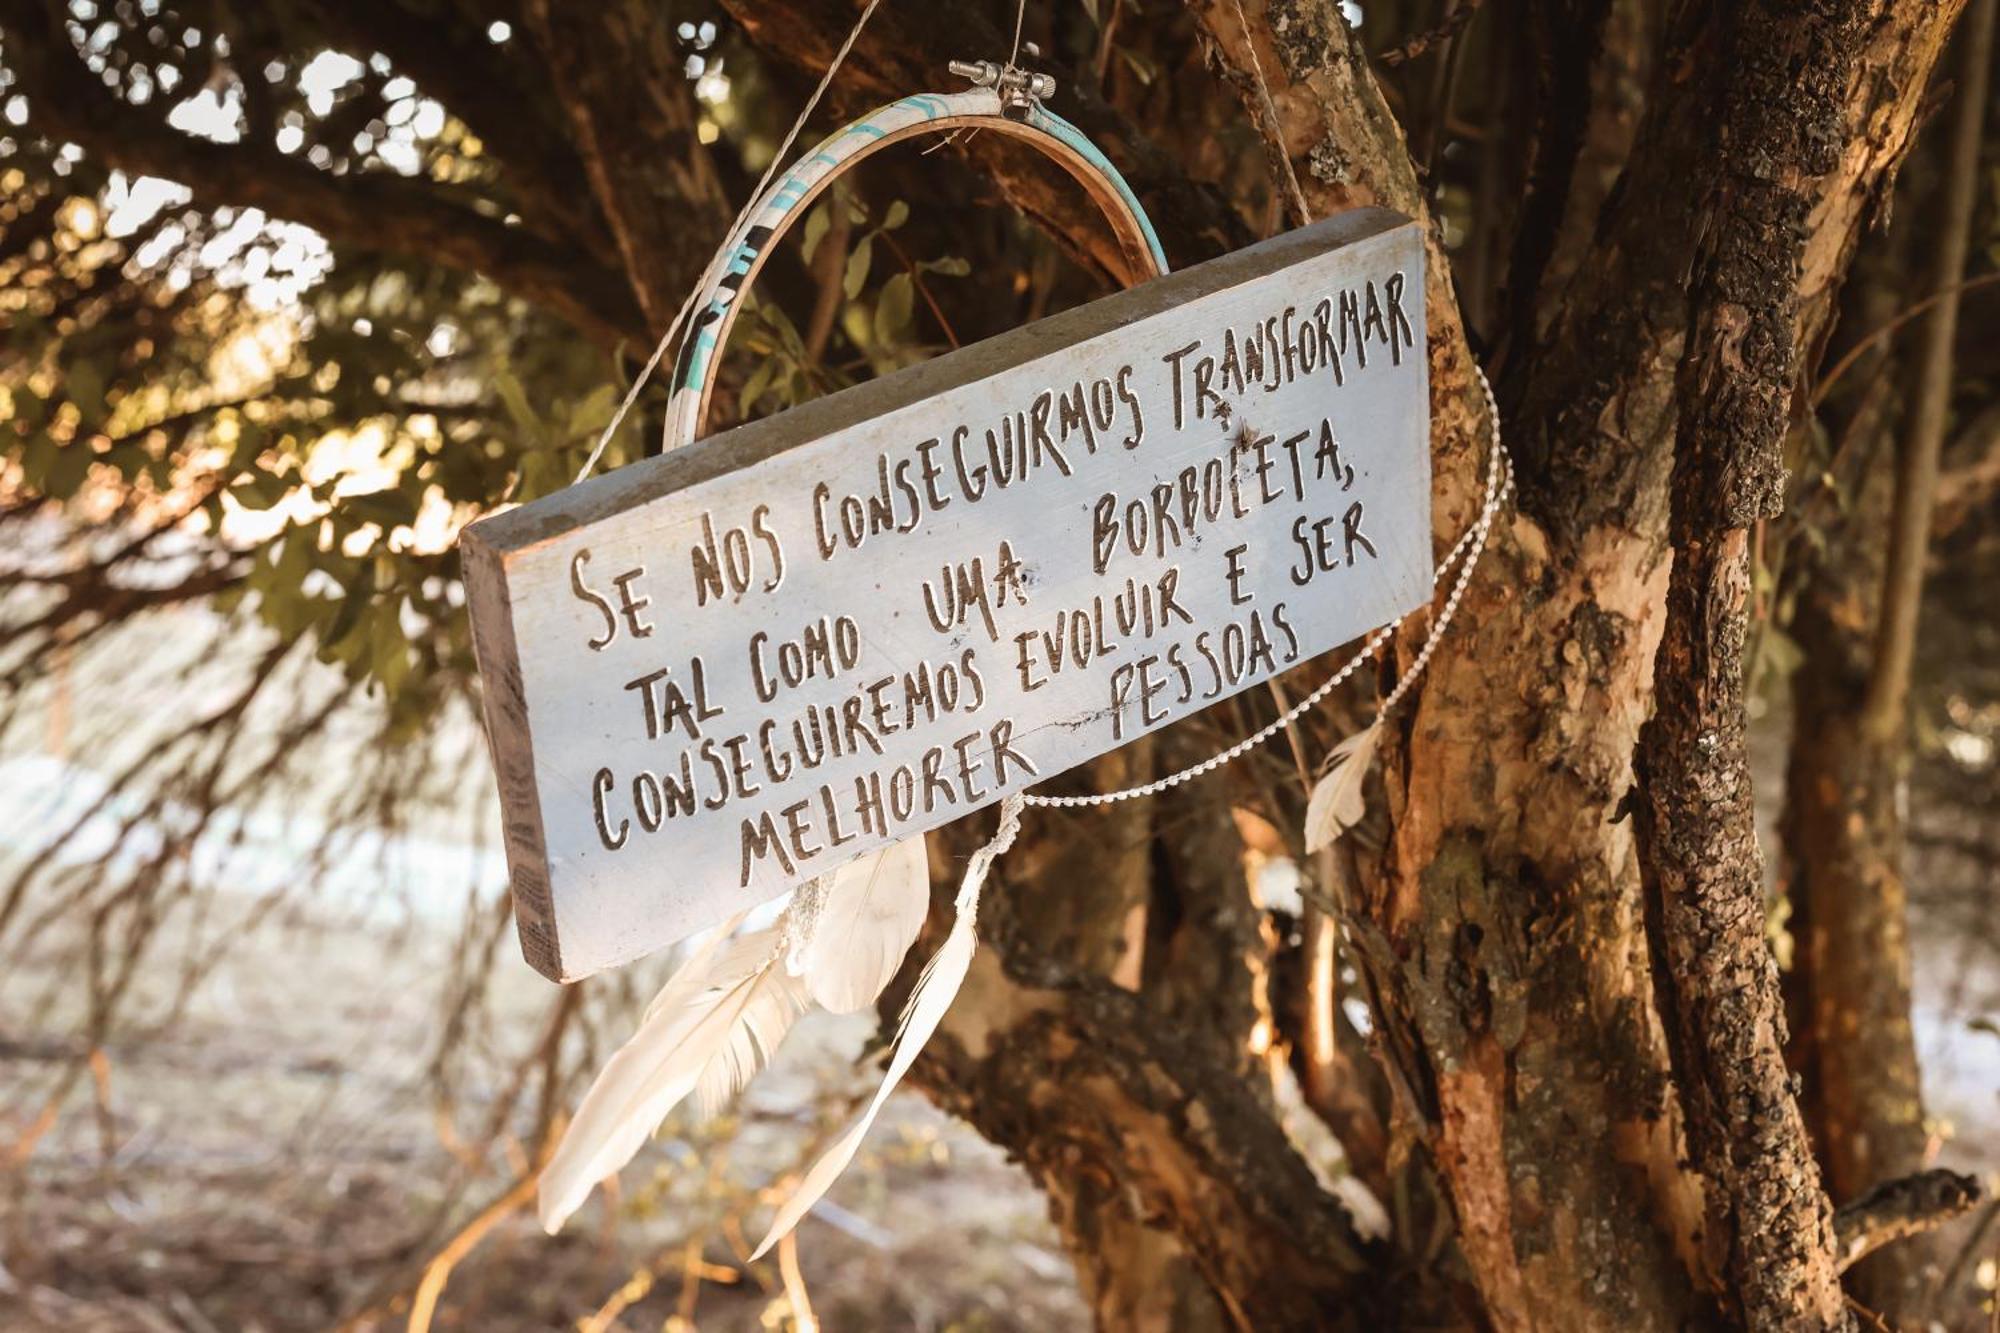 SE NOS CONSEGUIRMOS TRANSFORMAR
TAL COMO UMA BORBOLETA,
CONSEGUIREMOS EVOLUIR E SER
MELHORER PESSOAS